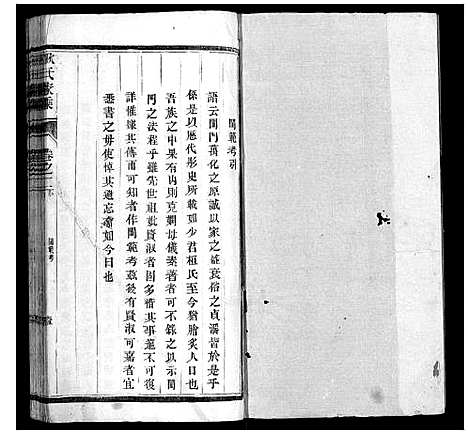 閫範考引
語云閨門萬化之原誠以家之盛衰俗之貞淫皆於是乎
係是以歷代彤史所載如少君桓氏至今猶膾炙人口也
吾族之中果有內則克嫻母儀素著者可不錄之以示閨
門之法程乎雖先世祖妣賢淑者固多惜其事遠不可復
詳惟據其傳而可知者作閫範考茲後有賢淑可嘉者宜
悉書之毋使悼其遺忘亦如今日也
氏家乘
卷之二
閫範考